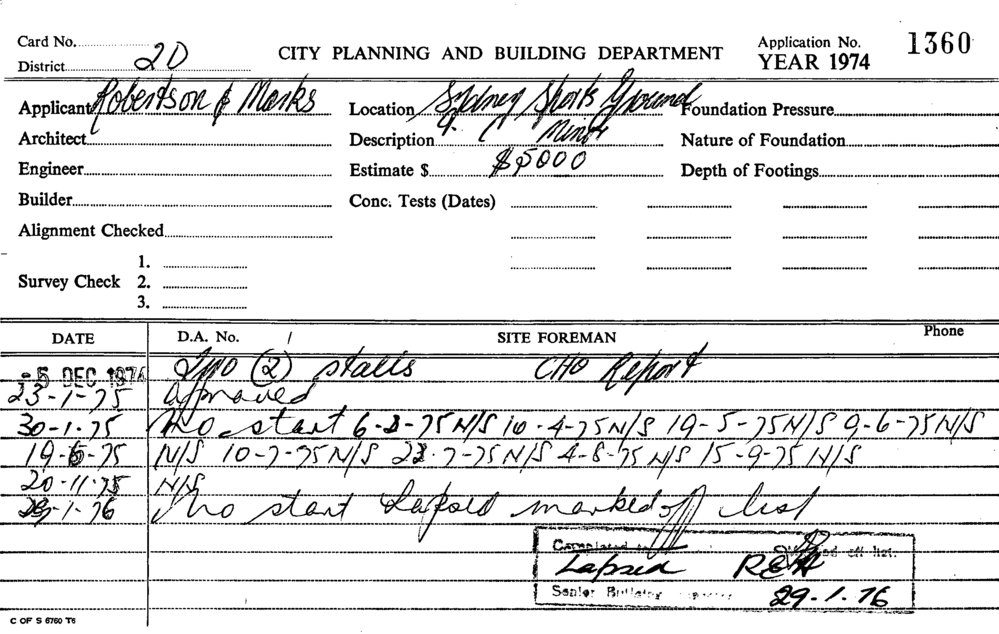 Card No.
District 2D
CITY PLANNING AND BUILDING DEPARTMENT
Application No. 1360
YEAR 1974
Applicant Robertson & Marks
Location Sydney Sports Ground
Foundation Pressure
Architect
Description Minor
Nature of Foundation
Engineer
Estimate $ $5000
Depth of Footings
Builder
Conc. Tests (Dates)
Alignment Checked
Survey Check 1.
2.
3.
DATE D.A. No. SITE FOREMAN Phone
-5 DEC 1974 Two (2) stalls CHO Report
23-1-75 approved
30-1-75 No start 6-3-75 N/S 10-4-75 N/S 19-5-75 N/S 9-6-75 N/S
19-6-75 N/S 10-7-75 N/S 22-7-75 N/S 4-8-75 N/S 15-9-75 N/S
20-11-75 N/S
29-1-76 No start Lapsed marked off list
Completed off list.
Lapsed REH
Senior Building
29-1-76
C OF S 6760 T6